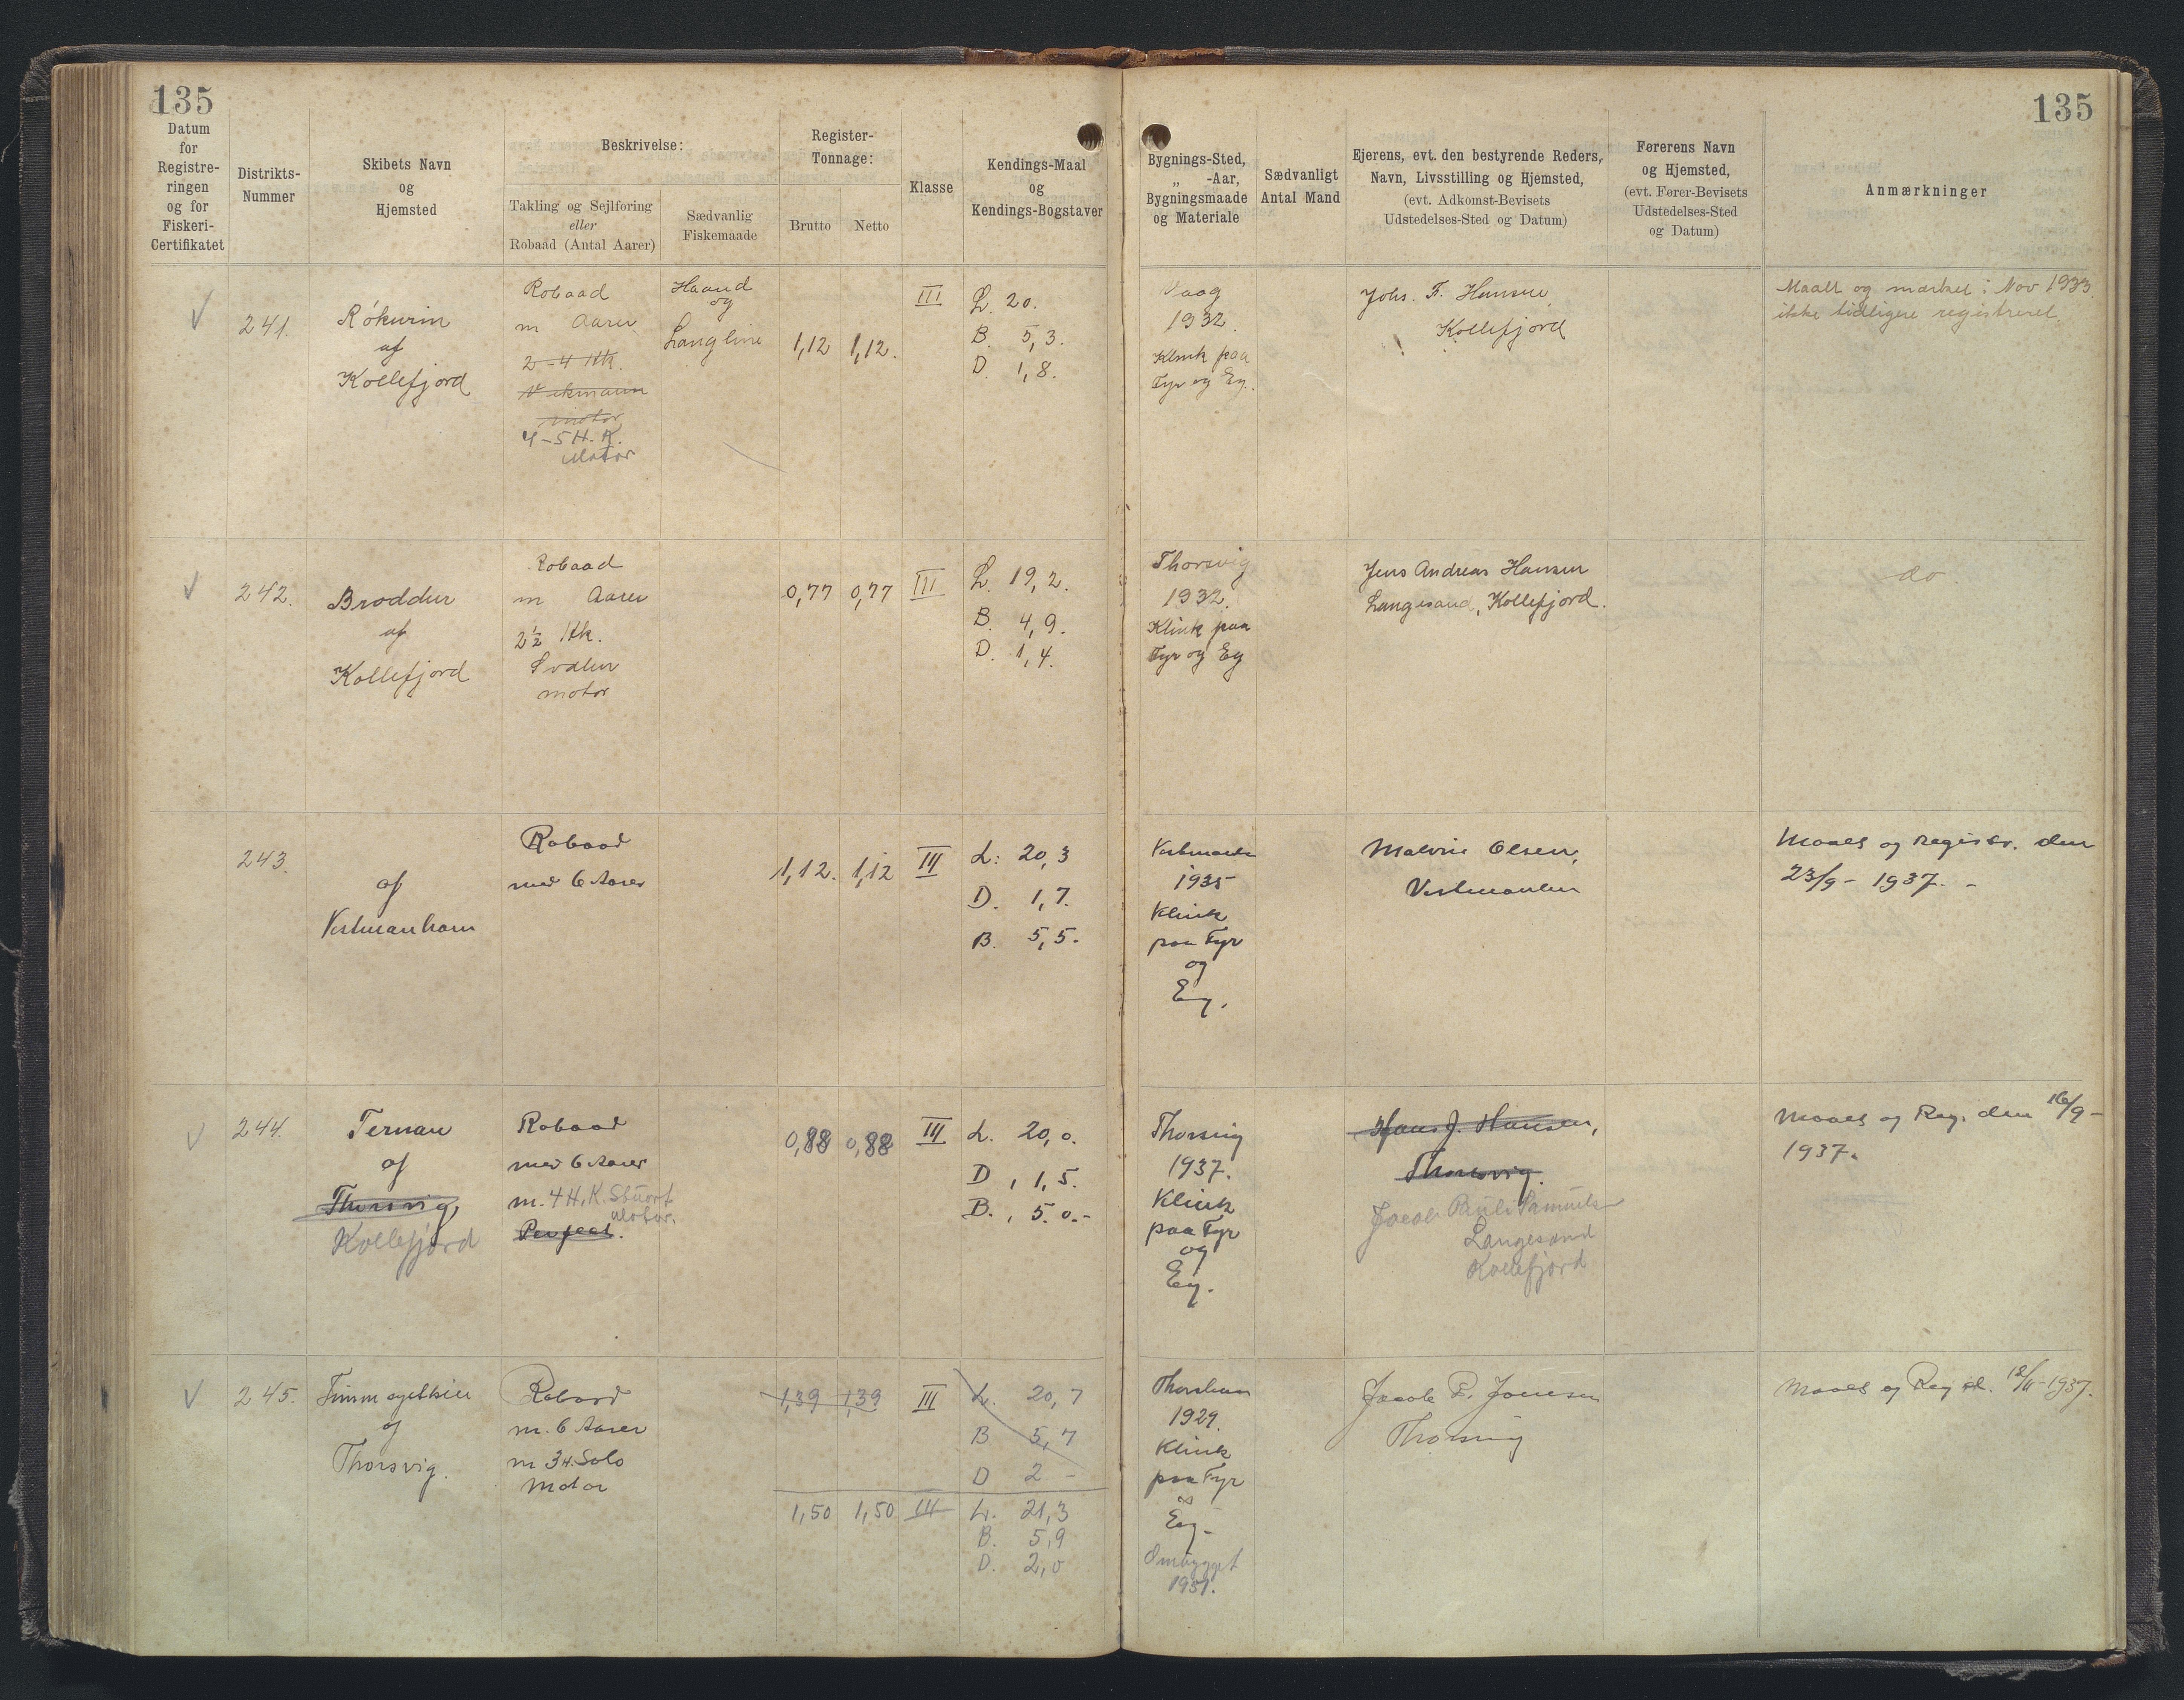 135
135
Datum
for
Registre-
ringen
og for
Fiskeri-
Certifikatet
Distrikts-
Nummer
Skibets Navn
og
Hjemsted
Beskrivelse:
Takling og Sejlføring
eller
Robaad (Antal Aarer)
Sædvanlig
Fiskemaade
Register-
Tonnage:
Brutto
Netto
Klasse
Kendings-Maal
og
Kendings-Bogstaver
Bygnings-Sted,
„ -Aar,
Bygningsmaade
og Materiale
Sædvanligt
Antal Mand
Ejerens, evt. den bestyrende Reders,
Navn, Livsstilling og Hjemsted,
(evt. Adkomst-Bevisets
Udstedelses-Sted og Datum)
Førerens Navn
og Hjemsted,
(evt. Fører-Bevisets
Udstedelses-Sted
og Datum)
Anmærkninger
✓
241.
Rókurin
af
Kollefjord
Robaad
m Aarer
2-4 Hk.
motor
4-5 H.K.
Motor
Haand
og
Langline
1,12
1,12.
III
L. 20.
B. 5,3.
D. 1,8.
Vaag
1932.
Klink paa
Fyr og Eg.
Johs. F. Hansen
Kollefjord
Maalt og mærket i Nov 1933.
ikke tidligere registreret.
✓
242.
Broddur
af
Kollefjord
Robaad
m Aarer
2½ Hk.
motor
0,77
0,77
III
L. 19,2.
B. 4,9.
D. 1,4.
Thorsvig
1932.
Klink paa
Fyr og Eg
Jens Andreas Hansen
Langesand, Kollefjord.
do.
243.
af
Vestmanhavn
Robaad
med 6 Aarer
1,12.
1,12
III
L: 20,3
D. 1,7.
B. 5,5.
1935
Klink
paa Fyr
og
Eg.
Malvin Olsen,
Maalt og Registr. den
23/9 - 1937. -
✓
244.
Ternan
af
Thorsvig,
Kollefjord
Robaad
med 6 Aarer
m. 4 H.K. Stuart
Motor.
Perfect.
0,88
0,88
III
L. 20,0.
D, 1,5.
B., 5.0.-
Thorsvig
1937.
Klink
paa Fyr
og
Eg.
Hans J. Hansen,
Thorsvig.
Jacob Pauli Samuelsen
Langesand
Kollefjord
Maalt og Reg. den 16/9 -
1937.
✓
245.
af
Thorsvig.
Robaad
m. 6 Aarer
m 3 H. Solo
Motor
1,39
1,39
III
L. 20,7
B 5,7
D 2 -
1,50
1,50
III
L. 21,3
B. 5,9
D. 2,0
Thorshavn
1929.
Klink
paa Fyr
og
Eg-
Ombygget
1951.
Jacob P. Joensen
Thorsvig
Maalt og Reg d. 12/11 - 1937.